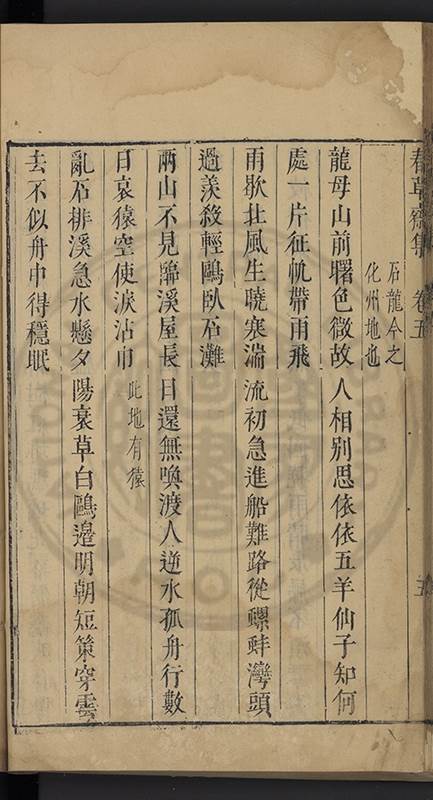 春草齋集 卷五 五
石龍今之
化州地也
龍母山前曙色微故人相别思依依五羊仙子知何
處一片征帆帶雨飛
雨歇北風生曉寒湍流初急進船難路從螺蚌灣頭
過羡殺輕鷗臥石灘
兩山不見臨溪屋長日還無喚渡人逆水孤舟行數
日哀猿空使淚沾巾 此地有猿
亂石排溪急水懸夕陽衰草白鷗邊明朝短策穿雲
去不似舟中得穩眠